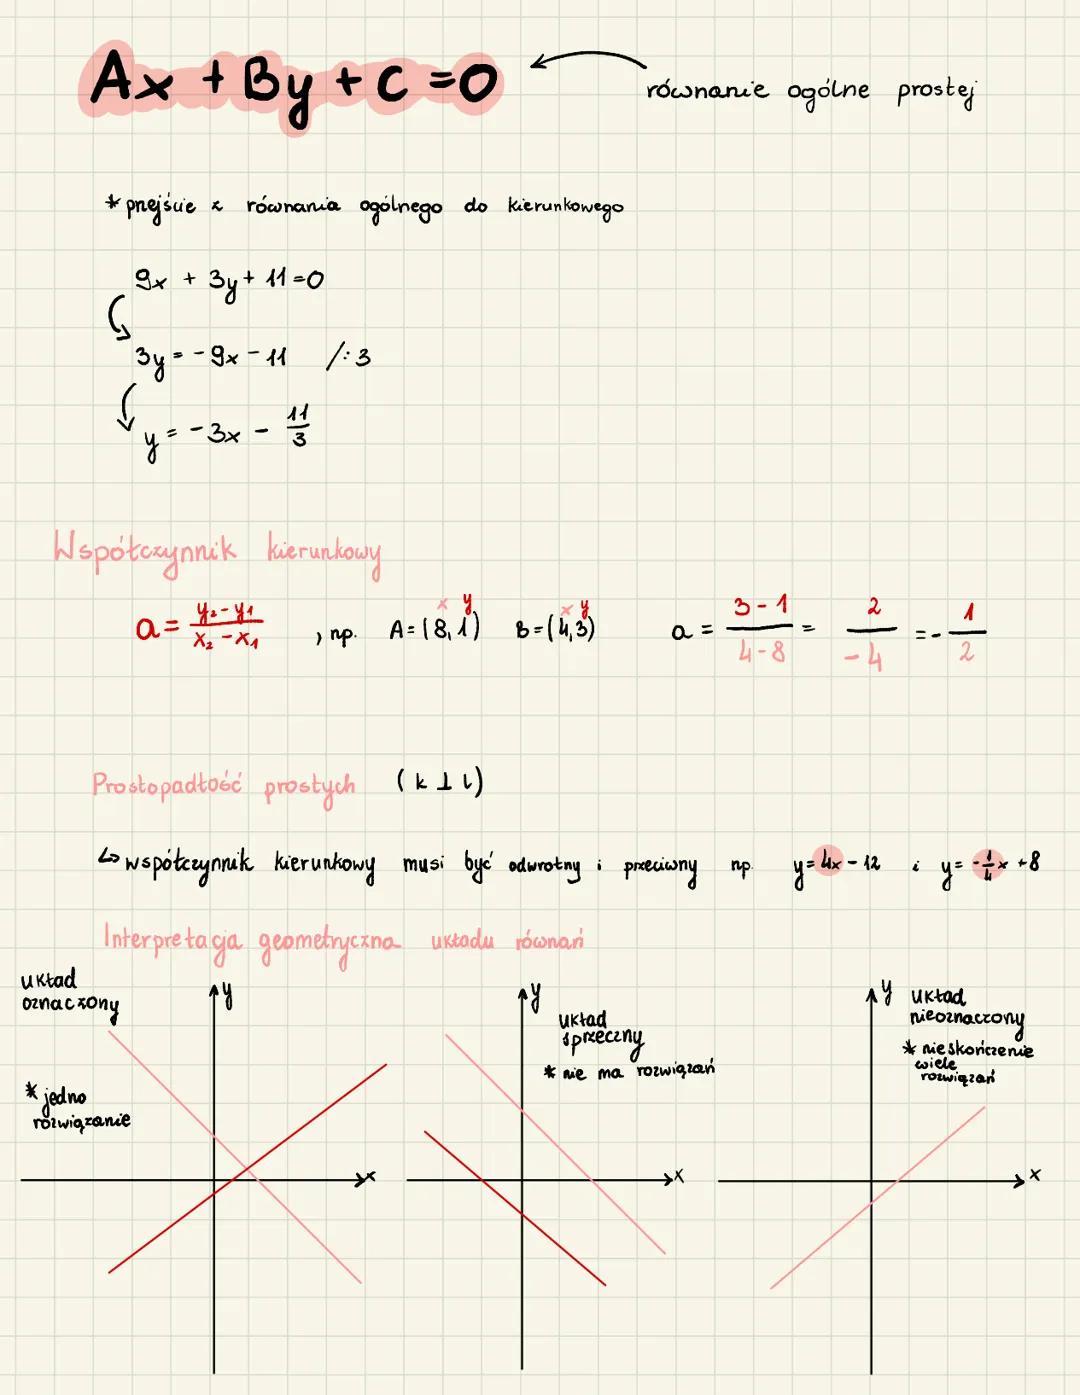 Ax + By + C = 0
równanie ogólne prostej
* przejście z równania ogólnego do kierunkowego
9x + 3y + 11 = 0
3y = - 9x - 11 /: 3
y = - 3x - 11/3
Współczynnik kierunkowy
a = y₂ - y₁ / x₂ - x₁ , np. A = (8, 1) B = (4, 3) a = 3 - 1 / 4 - 8 = 2 / - 4 = - 1 / 2
x y x y
Prostopadłość prostych (k ⊥ l)
↳ współczynnik kierunkowy musi być odwrotny i przeciwny np. y = 4x - 12 i y = - 1/4 x + 8
Interpretacja geometryczna układu równań
układ
oznaczony
* jedno
rozwiązanie
y
x
y
układ
sprzeczny
* nie ma rozwiązań
x
y
układ
nieoznaczony
* nieskończenie
wiele
rozwiązań
x